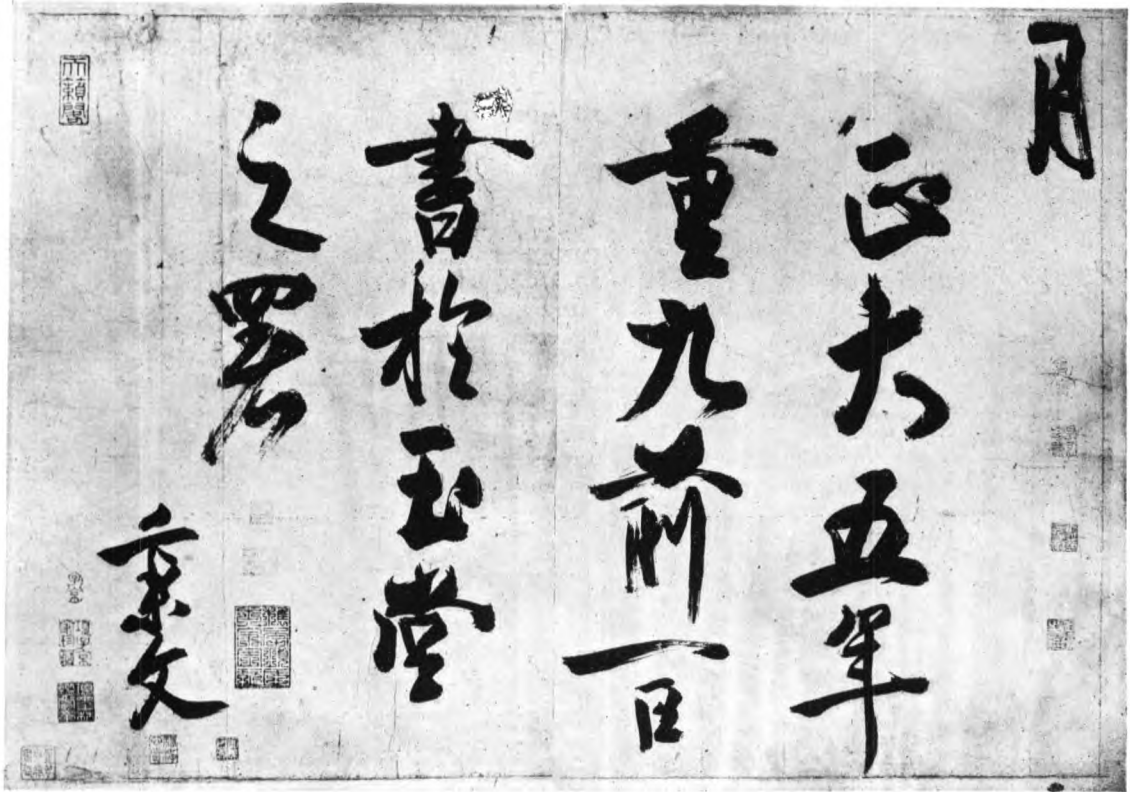 月
正大五年
重九前一日
書於玉堂
之署
秉文
天籟閣